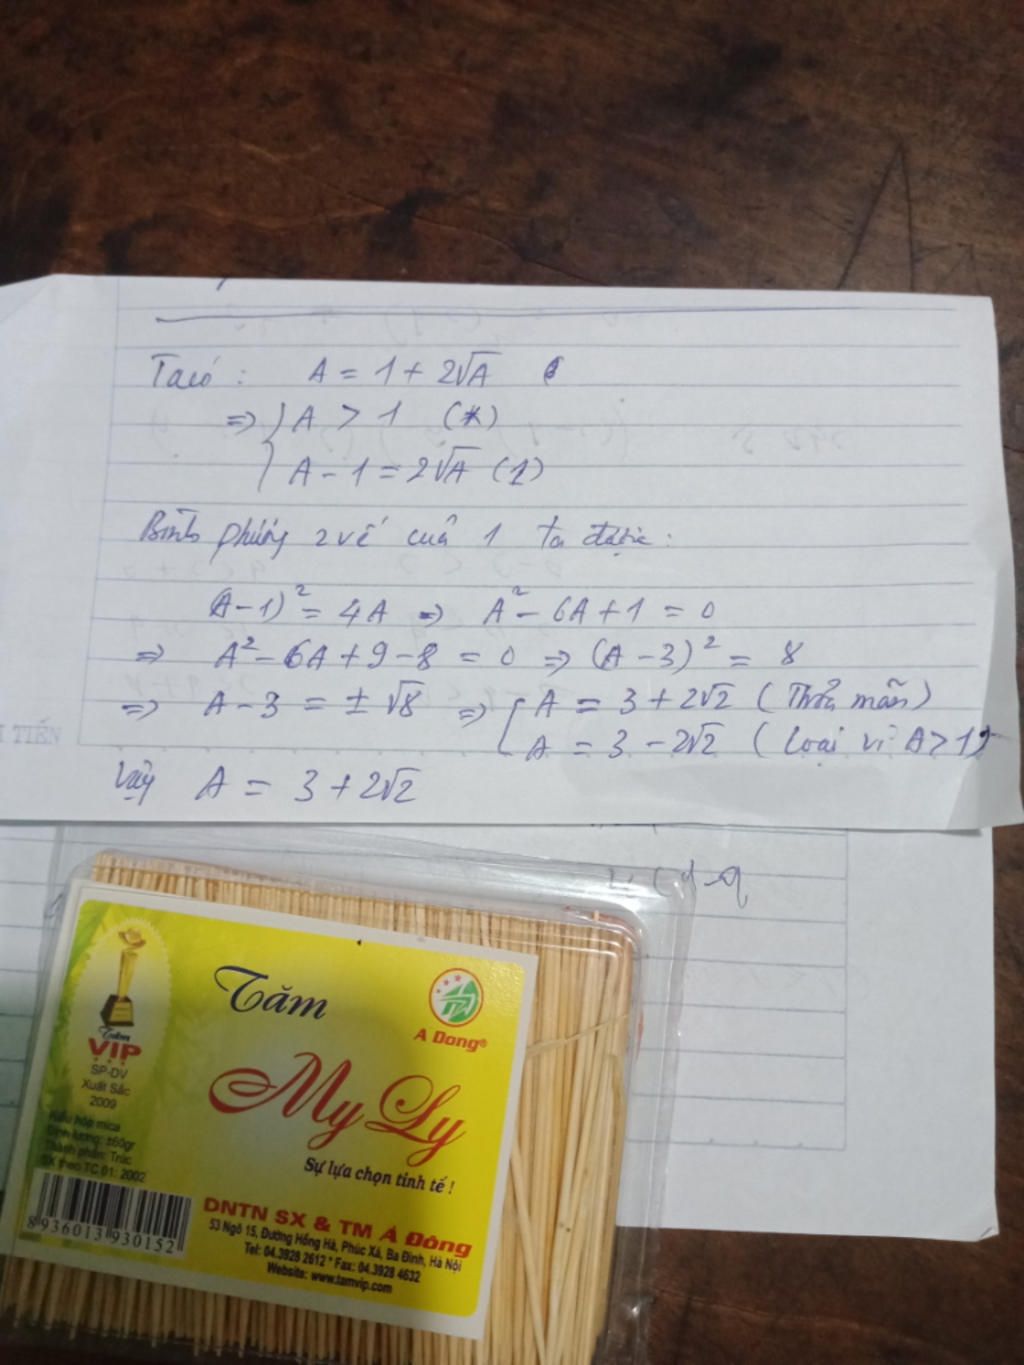 Ta có : A = 1 + 2√A
=> { A > 1 (*)
A - 1 = 2√A (1)
Bình phương 2 vế của 1 ta được:
(A-1)² = 4A => A² - 6A + 1 = 0
=> A² - 6A + 9 - 8 = 0 => (A - 3)² = 8
=> A - 3 = ± √8 => [ A = 3 + 2√2 ( Thỏa mãn )
A = 3 - 2√2 ( loại vì A > 1 )
Vậy A = 3 + 2√2
TIẾN
Tăm
A Dong®
My Ly
Sự lựa chọn tinh tế !
Tăm
VIP
SP-DV
Xuất Sắc
2009
Kiểu hộp mica
Định lượng: ±60gr
Thành phần: Trúc
SX theo TC 01: 2002
8 936013 930152
DNTN SX & TM Á Đông
53 Ngõ 15, Đường Hồng Hà, Phúc Xá, Ba Đình, Hà Nội
Tel: 04.3928 2612 * Fax: 04.3928 4632
Website: www.tamvip.com